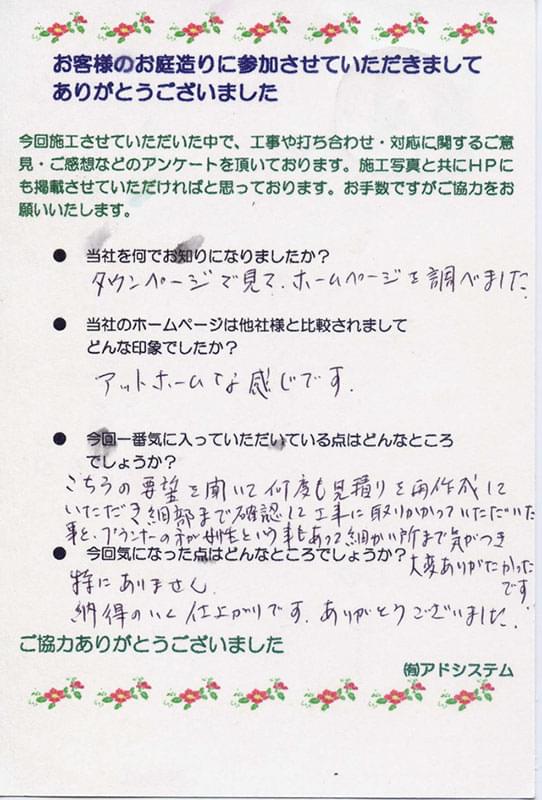 お客様のお庭造りに参加させていただきまして
ありがとうございました
今回施工させていただいた中で、工事や打ち合わせ・対応に関するご意
見・ご感想などのアンケートを頂いております。施工写真と共にＨＰに
も掲載させていただければと思っております。お手数ですがご協力をお
願いいたします。
● 当社を何でお知りになりましたか？
タウンページで見て、ホームページを調べました
● 当社のホームページは他社様と比較されまして
どんな印象でしたか？
アットホームな感じです.
● 今回一番気に入っていただいている点はどんなところ
でしょうか？
こちらの要望を聞いて何度も見積りを再作成して
いただき細部まで確認して工事に取りかかっていただいた
事と、プランナーの方が女性という事もあって細かい所まで気がつき
大変ありがたかった
です
● 今回気になった点はどんなところでしょうか？
特にありません.
納得のいく仕上がりです. ありがとうございました.
ご協力ありがとうございました
㈲アドシステム